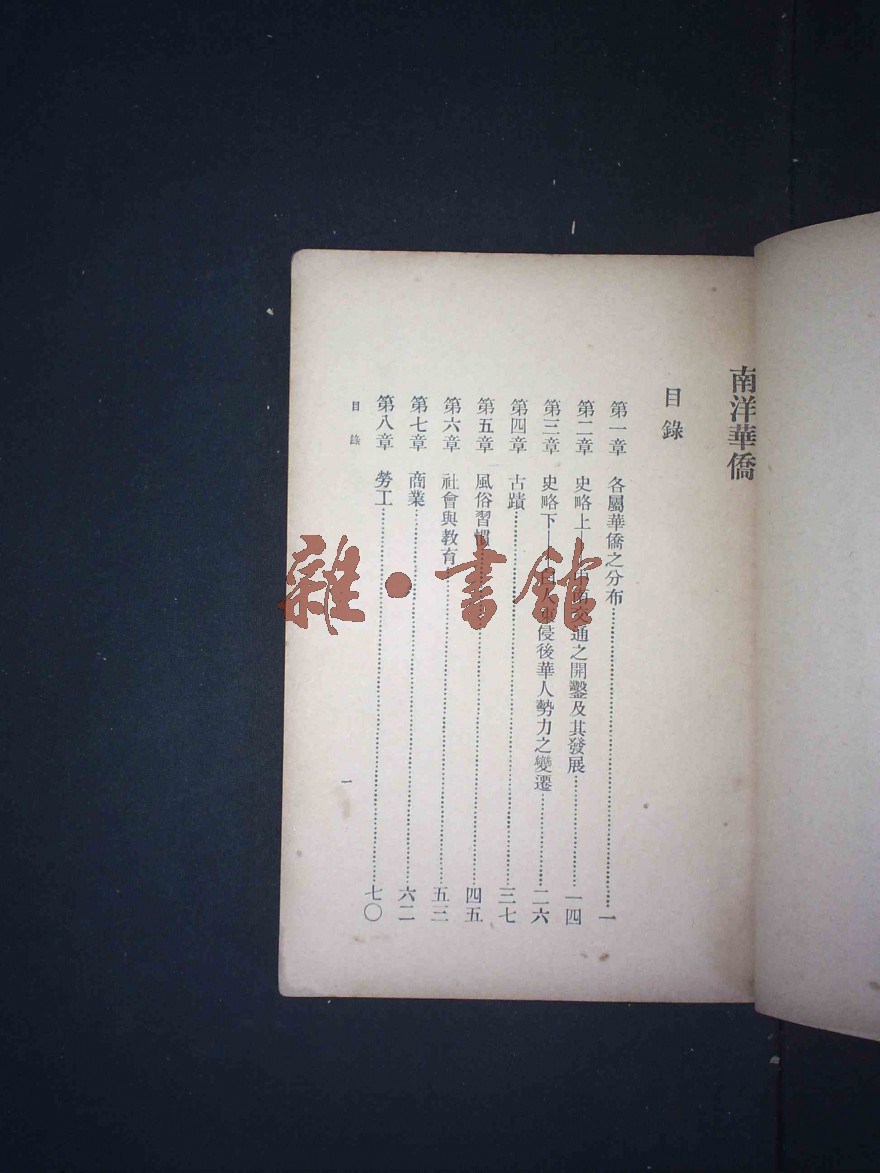 南洋華僑
目錄
第一章 各屬華僑之分布……一
第二章 史略上—中南交通之開鑿及其發展……一四
第三章 史略下—侵後華人勢力之變遷……二六
第四章 古蹟……三七
第五章 風俗習慣……四五
第六章 社會與教育……五三
第七章 商業……六二
第八章 勞工……七〇
目錄
一
雜·書館